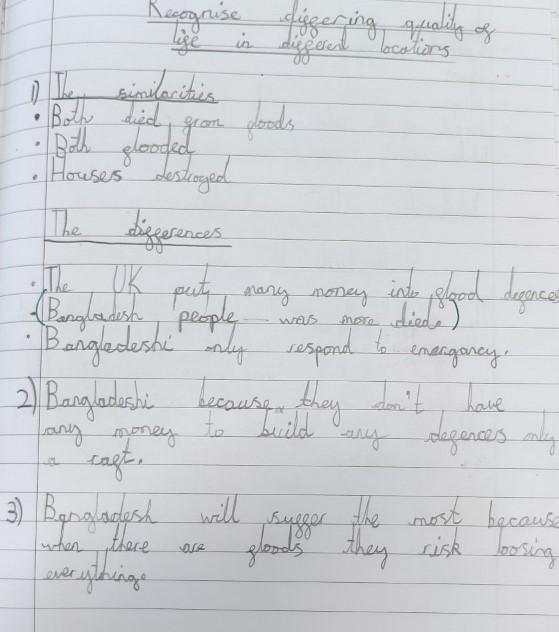 Recognise differing quality of
life in different locations
1) The similarities
• Both died from floods
• Both flooded
• Houses destroyed
The differences
• The UK put many money into flood defences
• (Bangladesh people was more died.)
• Bangladeshi only respond to emergancy.
2) Bangladoshi because they don't have
any money to build any defences only
a raft.
3) Bangladesh will suffer the most because
when there are floods they risk loosing
everything.